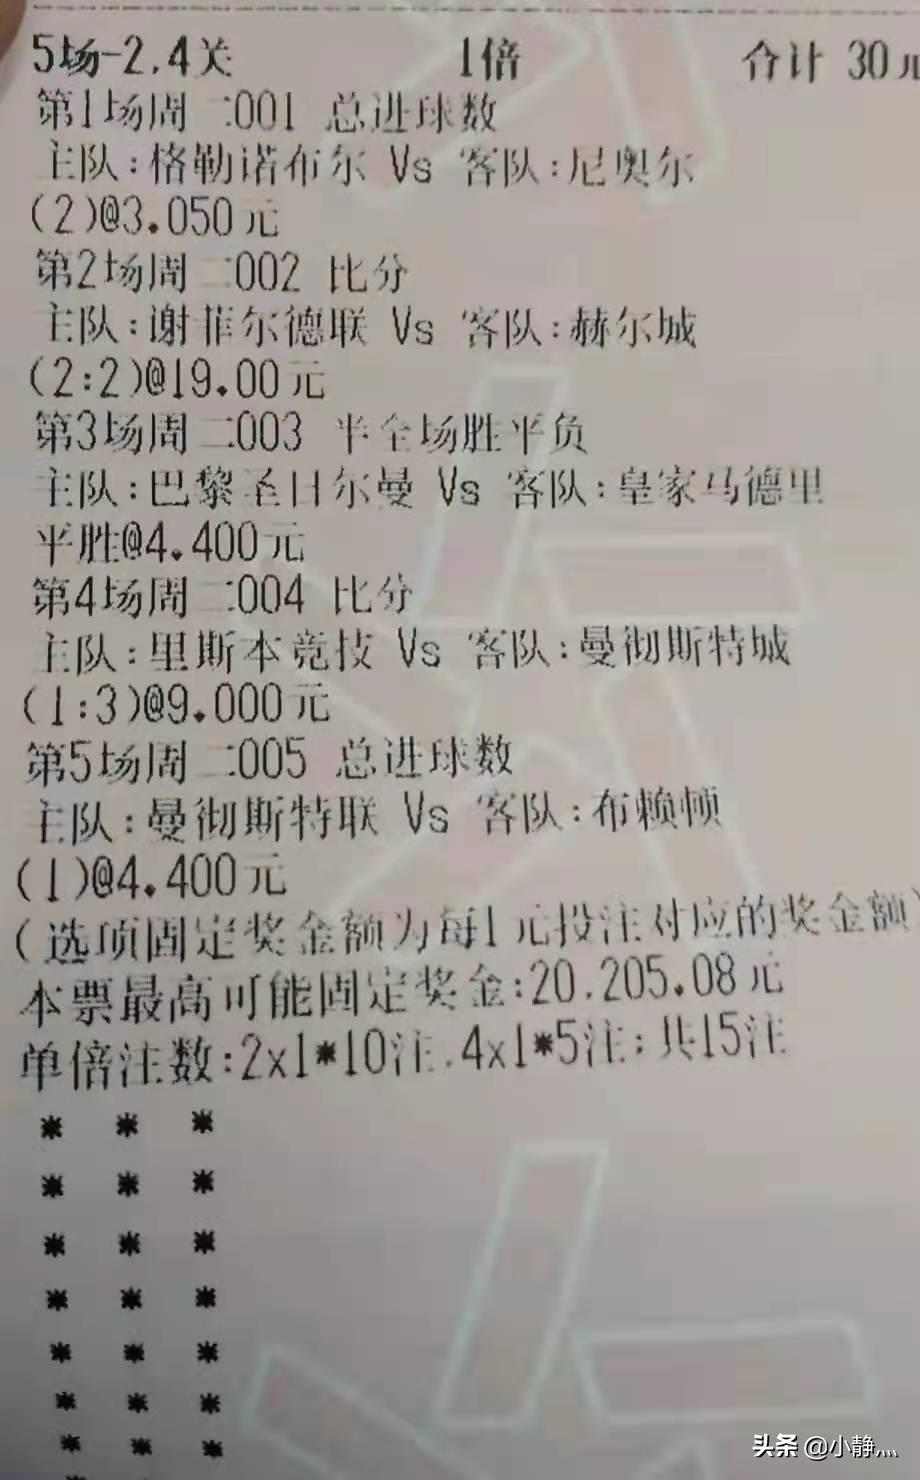 5场-2,4关 1倍 合计 30元
第1场周二001 总进球数
主队:格勒诺布尔 Vs 客队:尼奥尔
(2)@3.050元
第2场周二002 比分
主队:谢菲尔德联 Vs 客队:赫尔城
(2:2)@19.00元
第3场周二003 半全场胜平负
主队:巴黎圣日尔曼 Vs 客队:皇家马德里
平胜@4.400元
第4场周二004 比分
主队:里斯本竞技 Vs 客队:曼彻斯特城
(1:3)@9.000元
第5场周二005 总进球数
主队:曼彻斯特联 Vs 客队:布赖顿
(1)@4.400元
(选项固定奖金额为每1元投注对应的奖金额)
本票最高可能固定奖金:20,205.08元
单倍注数:2x1*10注,4x1*5注;共15注
* * *
* * *
* * *
* * *
* * *
* * *
* * *
头条 @小静灬